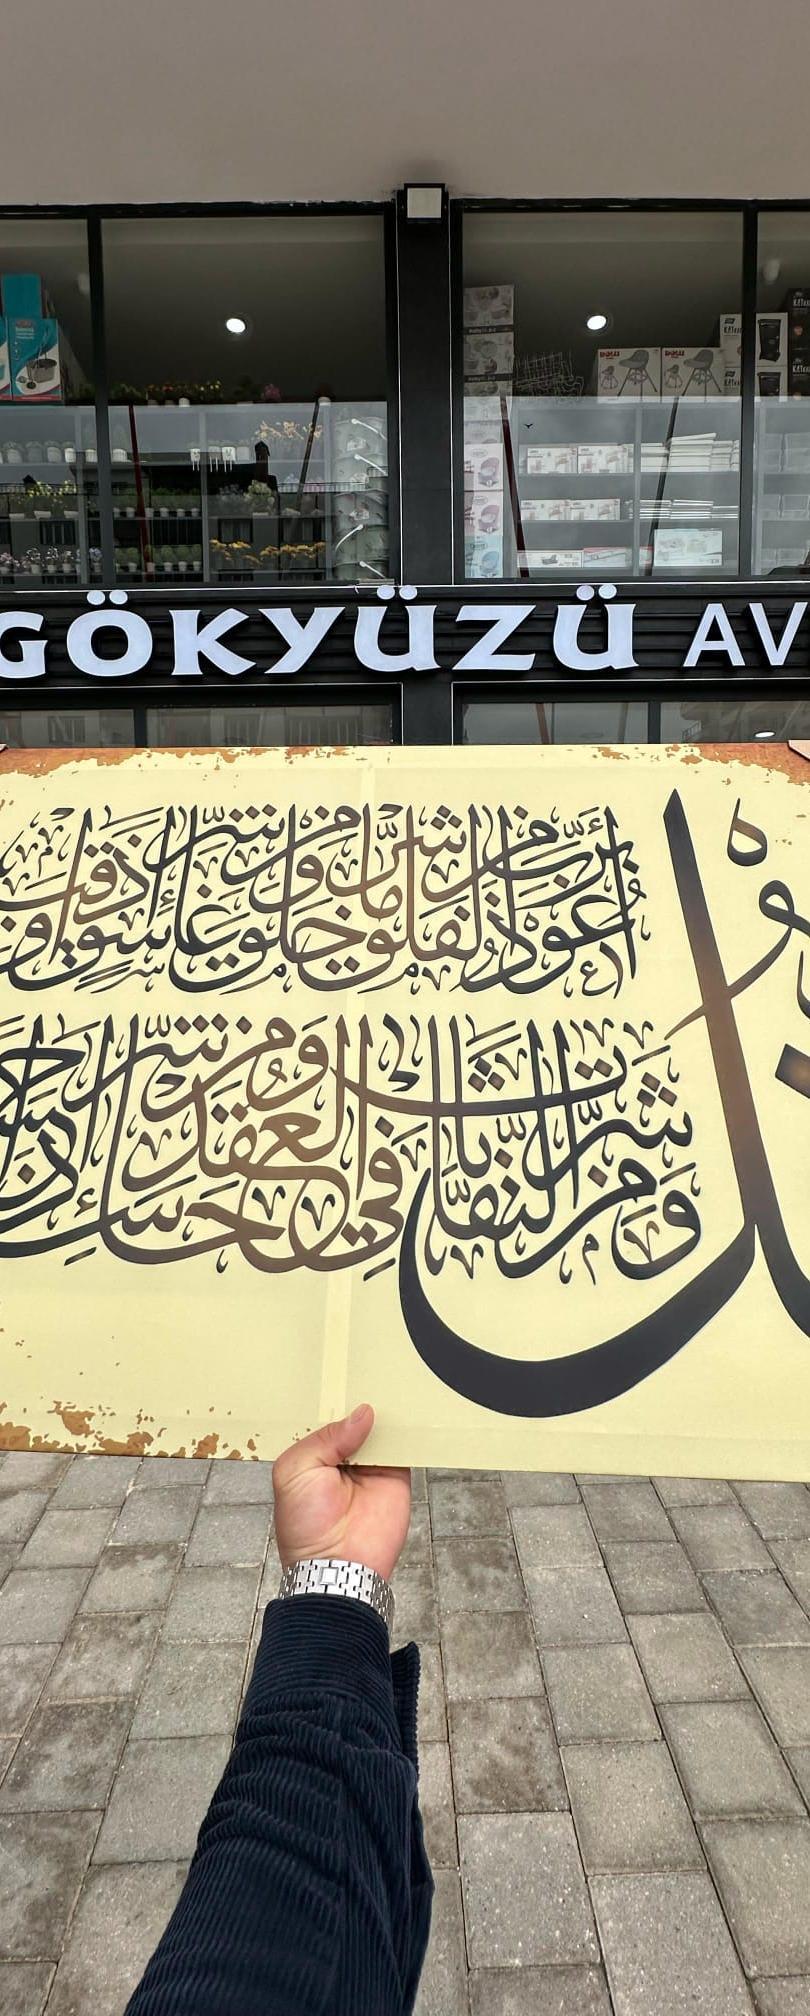 GÖKYÜZÜ AV
أعوذ برب الفلق من شر ما خلق ومن شر غاسق إذا وقب
ومن شر النفاثات في العقد ومن شر حاسد إذا حسد